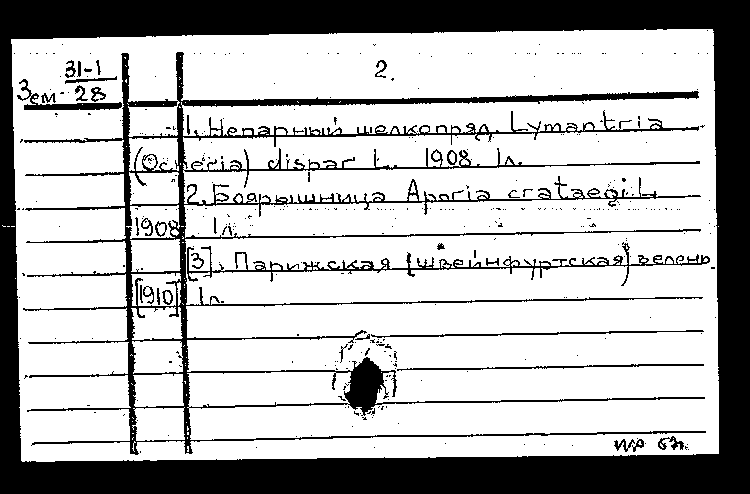 31-1 2.
Зем. 28
1. Непарный шелкопряд. Lymantria
(Ocneria) dispar L. 1908. 1л.
2. Боярышница Aporia crataegi L.
1908. 1л.
[3]. Парижская (швейнфуртская) зелень.
[1910] 1л.